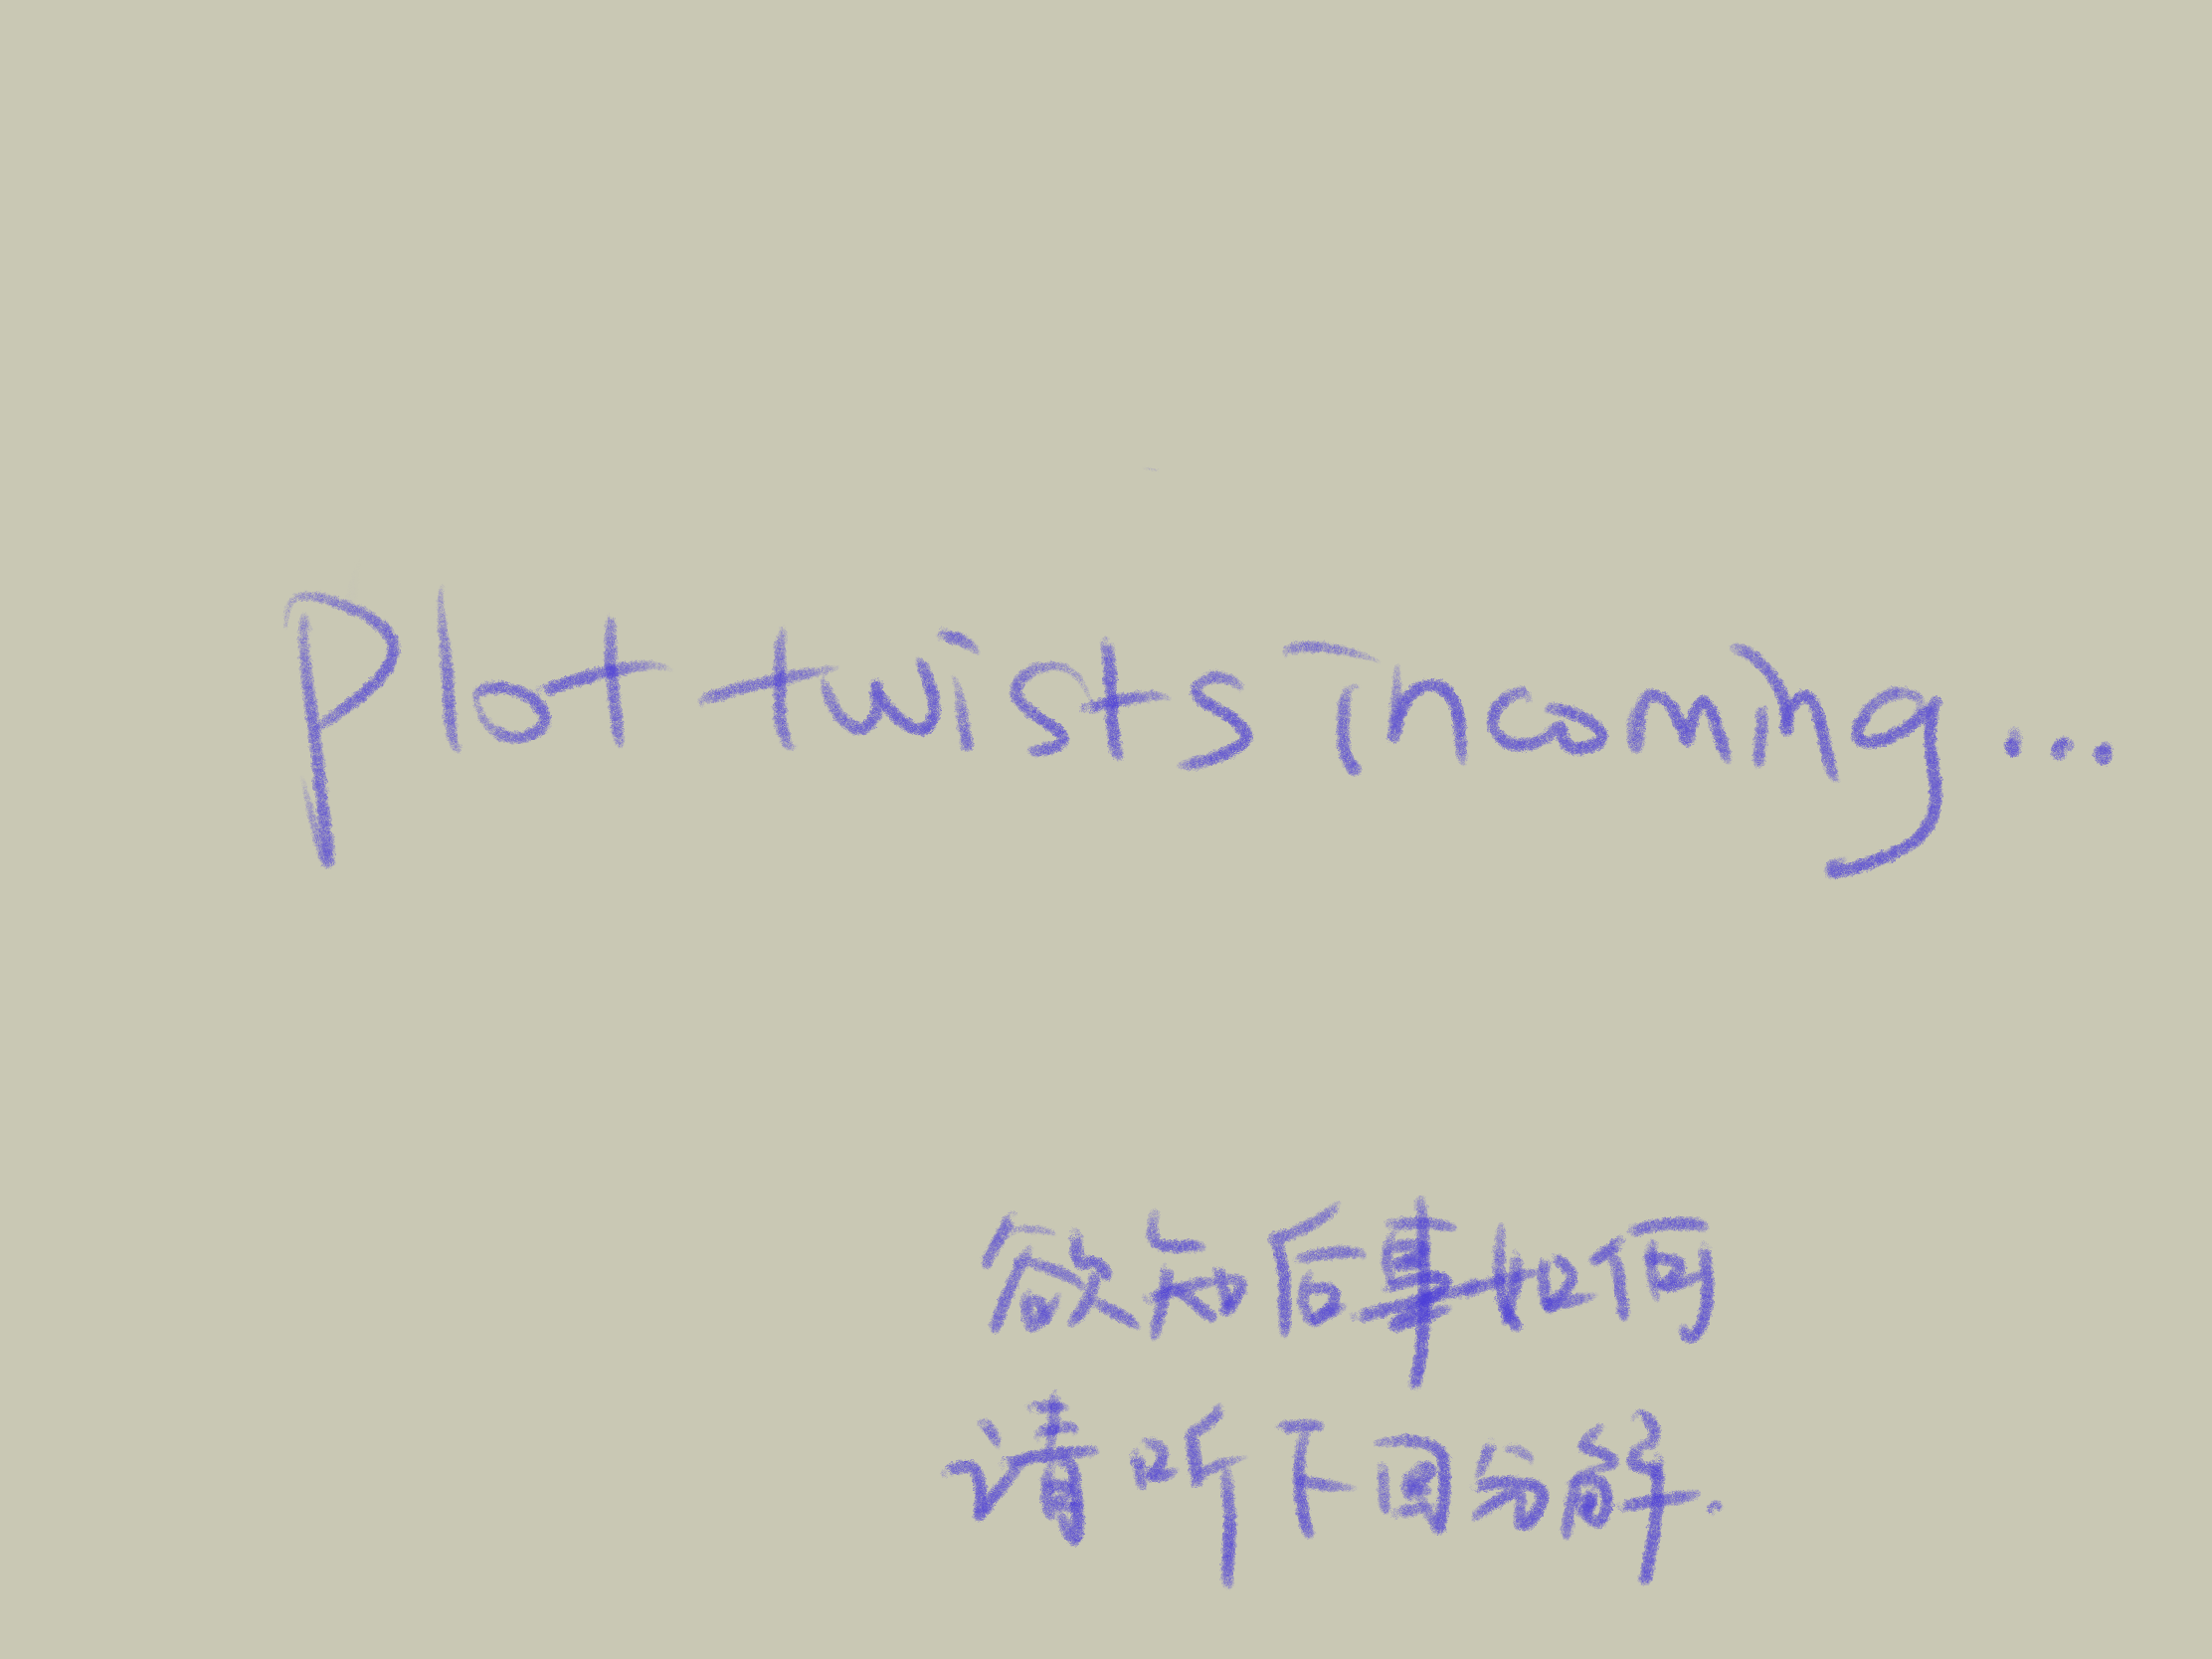 Plot twists incoming...
欲知后事如何
请听下回分解.